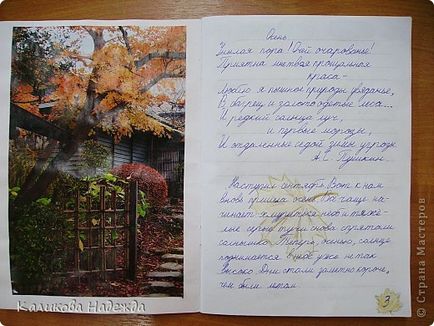 Осень
Унылая пора! Очей очарованье!
Приятна мне твоя прощальная
краса -
Люблю я пышное природы увяданье,
В багрец и золото одетые леса...
И редкий солнца луч,
и первые морозы,
И отдаленные седой зимы угрозы.
А.С. Пушкин.
Наступил сентябрь. Вот к нам
вновь пришла осень. Всё чаще на-
чинает хмуриться небо и тяжё-
лые серые тучи снова спрятали
солнышко. Теперь, осенью, солнце
поднимается в небе уже не так
высоко. Дни стали заметно короче,
чем были летом.
3
Каликова Надежда
© Страна Мастеров